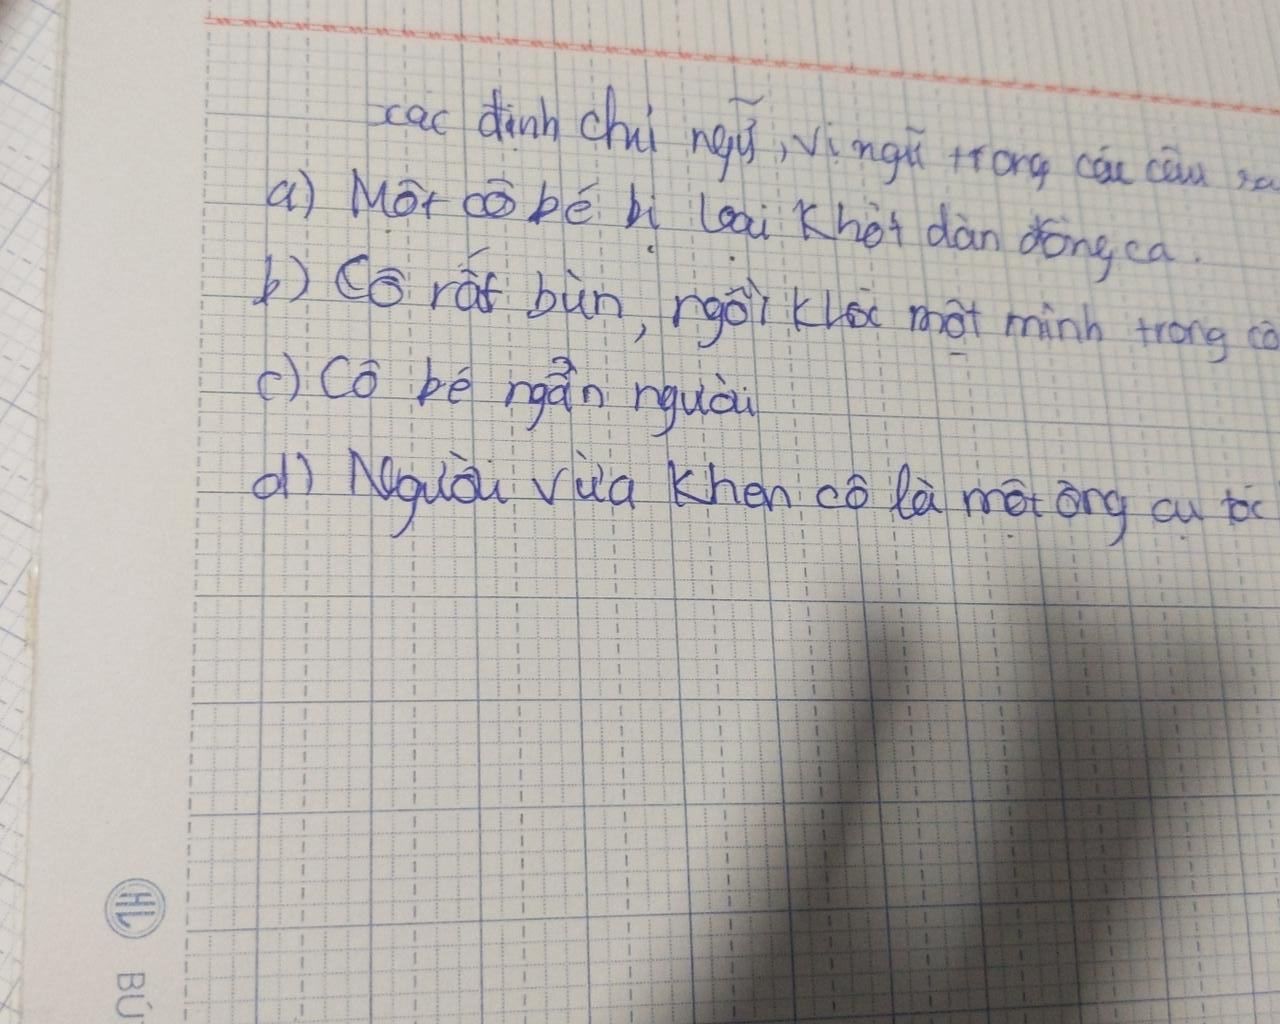 xác định chủ ngữ, vị ngữ trong các câu sa
a) Một cô bé bị loại khỏi dàn đồng ca.
b) Cô rất buồn, ngồi khóc một mình trong cô
c) Cô bé ngẩn người
d) Người vừa khen cô là một ông cụ tóc
HL
BÚ